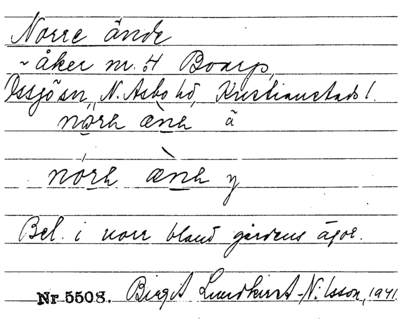 Norre ände
~ åker nr. 4 Boarp,
Össjö sn, N. Åsbo hd, Kristianstads l.
nørh ænh ä
nórh ænh y
Bel. i norr bland gårdens ägor.
Nr 5508. Birgit Lundkvist-Nilsson, 1941.